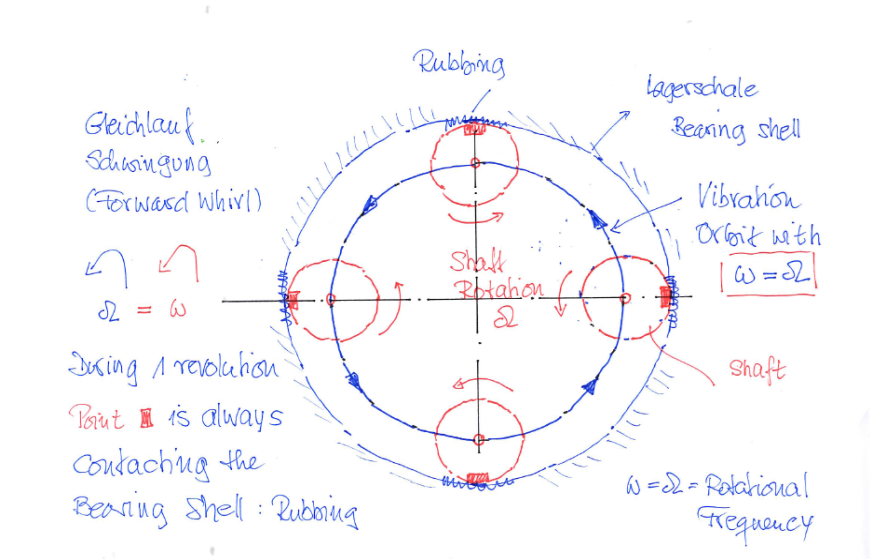 Rubbing
Lagerschale
Bearing shell
Gleichlauf
Schwingung
(Forward Whirl)
Vibration
Orbit with
ω = Ω
Shaft
Rotation
Ω
Ω = ω
During 1 revolution
Point is always
contacting the
Bearing Shell : Rubbing
Shaft
ω = Ω = Rotational
Frequency